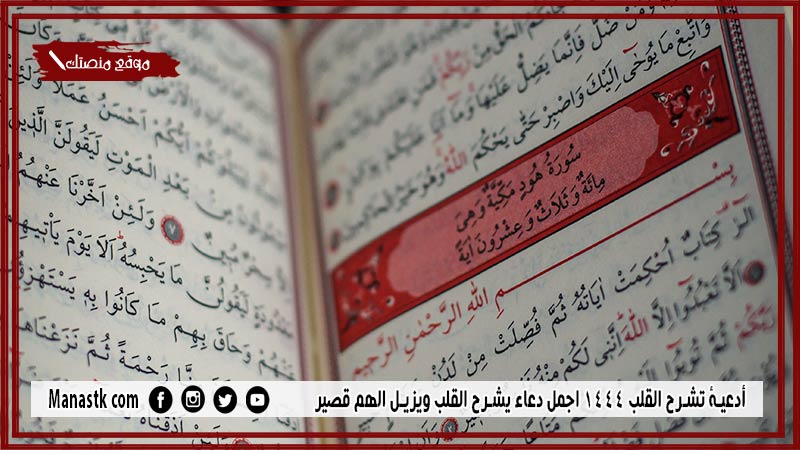 موقع منصتك
جَاءَكُمُ الْحَقُّ مِنْ رَبِّكُمْ
وَمَنْ ضَلَّ فَاِنَّمَا يَضِلُّ عَلَيْهَا وَمَا اَنَا عَلَيْكُمْ بِوَكِيلٍ
وَاتَّبِعْ مَا يُوحٰى اِلَيْكَ وَاصْبِرْ حَتّٰى يَحْكُمَ اللّٰهُ وَهُوَ خَيْرُ الْحَاكِمِينَ
سُورَةُ هُودٍ مَكِّيَّةٌ وَهِيَ
مِائَةٌ وَثَلَاثٌ وَعِشْرُونَ اٰيَةً
بِسْمِ اللّٰهِ الرَّحْمٰنِ الرَّحِيمِ
الٓرٰ كِتَابٌ اُحْكِمَتْ اٰيَاتُهُ ثُمَّ فُصِّلَتْ مِنْ لَدُنْ
اَلَّا تَعْبُدُوا اِلَّا اللّٰهَ اِنَّنِي لَكُمْ مِنْهُ
رَبَّكُمْ ثُمَّ تُوبُوا
اَيُّكُمْ اَحْسَنُ عَمَلًا وَلَئِنْ
مِنْ بَعْدِ الْمَوْتِ لَيَقُولَنَّ الَّذِينَ
مُبِينٌ ٧ وَلَئِنْ اَخَّرْنَا عَنْهُمُ
مَعْدُودَةٍ لَيَقُولُنَّ مَا يَحْبِسُهُ اَلَا يَوْمَ يَاْتِيهِمْ
عَنْهُمْ وَحَاقَ بِهِمْ مَا كَانُوا بِهِ يَسْتَهْزِؤُنَ
رَحْمَةً ثُمَّ نَزَعْنَاهَا
أدعية تشرح القلب ١٤٤٤ اجمل دعاء يشرح القلب ويزيل الهم قصير
Manastk com